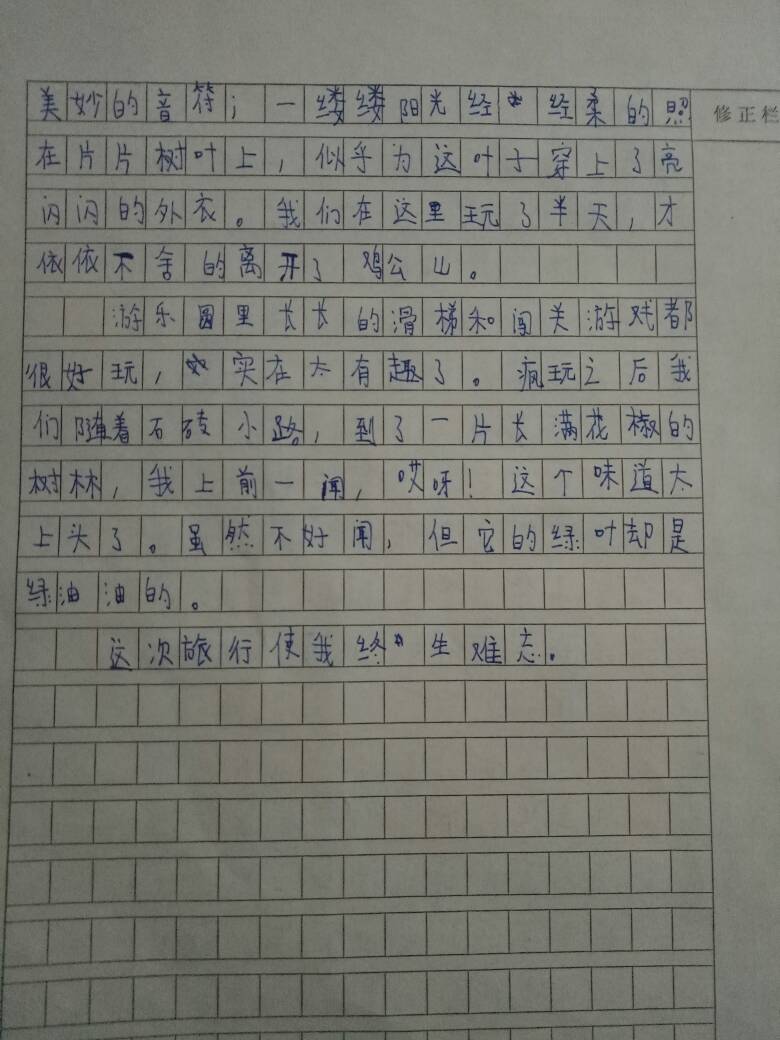 美妙的音符；一缕缕阳光经经柔的照
修正栏
在片片树叶上，似乎为这叶子穿上了亮
闪闪的外衣。我们在这里玩了半天，才
依依不舍的离开了鸡公山。
游乐园里长长的滑梯和闯关游戏都
很好玩，实在太有趣了。疯玩之后我
们随着石砖小路，到了一片长满花椒的
树林，我上前一闻，哎呀！这个味道太
上头了。虽然不好闻，但它的绿叶却是
绿油油的。
这次旅行使我终生难忘。